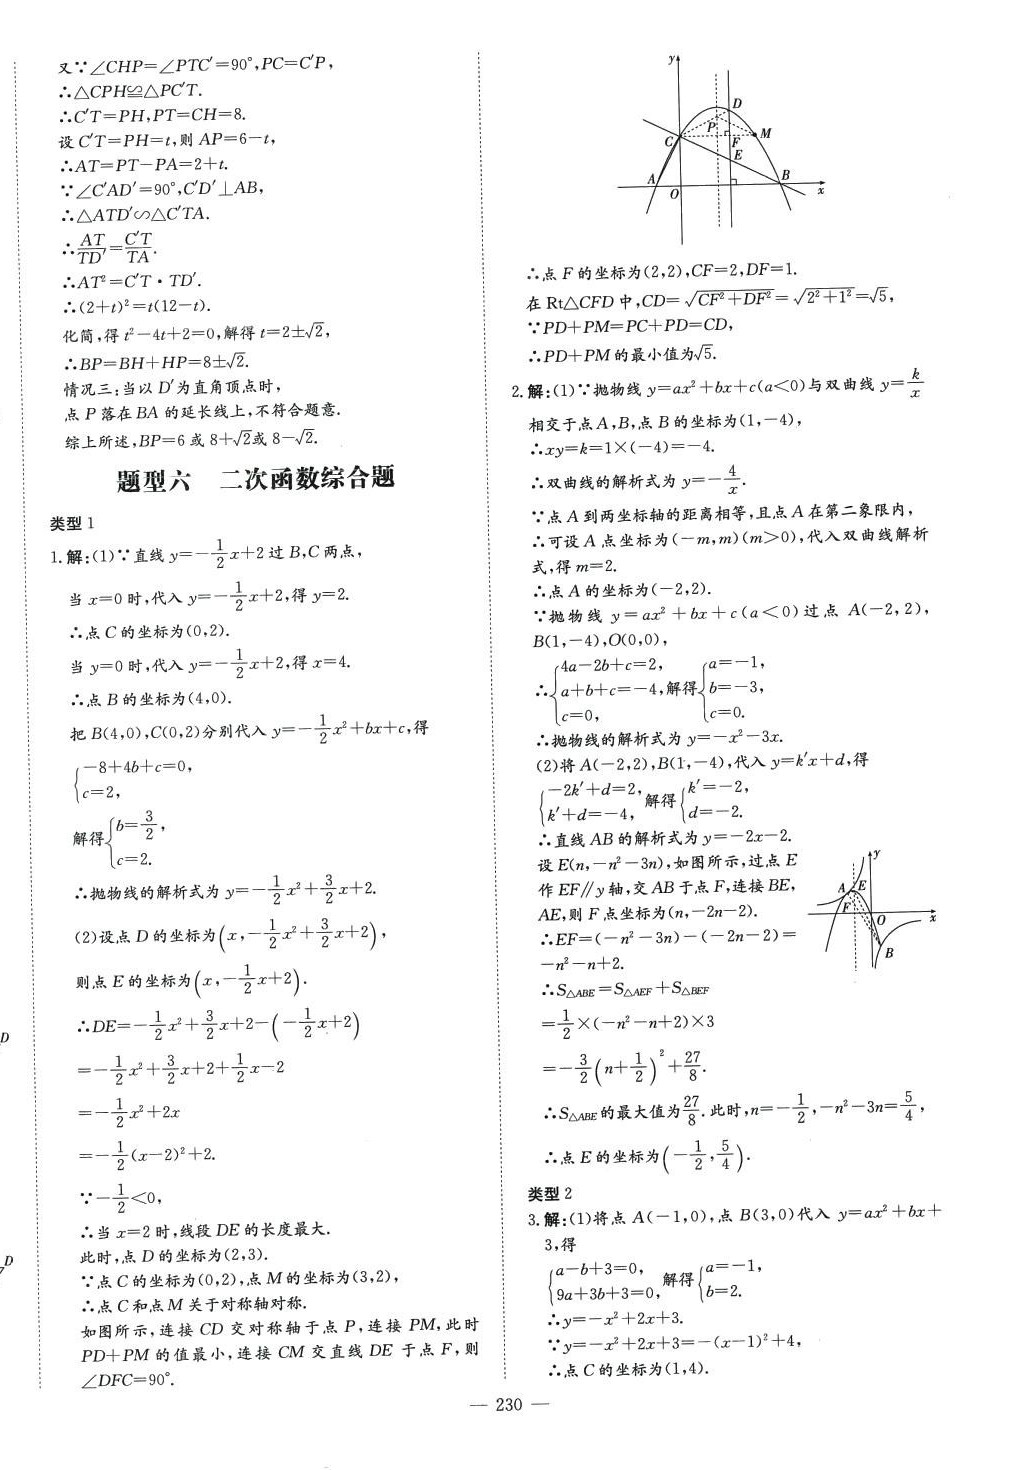 又∵∠CHP=∠PTC′=90°,PC=C′P,
∴△CPH≌△PC′T.
∴C′T=PH,PT=CH=8.
设 C′T=PH=t,则 AP=6-t,
∴AT=PT-PA=2+t.
∵∠C′AD′=90°,C′D′⊥AB,
∴△ATD′∽△C′TA.
∴AT/TD′=C′T/TA.
∴AT²=C′T·TD′.
∴(2+t)²=t(12-t).
化简,得 t²-4t+2=0,解得 t=2±√2,
∴BP=BH+HP=8±√2.
情况三:当以 D′为直角顶点时,
点 P 落在 BA 的延长线上,不符合题意.
综上所述,BP=6 或 8+√2或 8-√2.
题型六 二次函数综合题
类型 1
1.解:(1)∵直线 y=-1/2x+2 过 B,C 两点,
当 x=0 时,代入 y=-1/2x+2,得 y=2.
∴点 C 的坐标为(0,2).
当 y=0 时,代入 y=-1/2x+2,得 x=4.
∴点 B 的坐标为(4,0).
把 B(4,0),C(0,2)分别代入 y=-1/2x²+bx+c,得
{-8+4b+c=0,
c=2,
解得{b=3/2,
c=2.
∴抛物线的解析式为 y=-1/2x²+3/2x+2.
(2)设点 D 的坐标为(x,-1/2x²+3/2x+2),
则点 E 的坐标为(x,-1/2x+2).
∴DE=-1/2x²+3/2x+2-(-1/2x+2)
=-1/2x²+3/2x+2+1/2x-2
=-1/2x²+2x
=-1/2(x-2)²+2.
∵-1/2<0,
∴当 x=2 时,线段 DE 的长度最大.
此时,点 D 的坐标为(2,3).
∵点 C 的坐标为(0,2),点 M 的坐标为(3,2),
∴点 C 和点 M 关于对称轴对称.
如图所示,连接 CD 交对称轴于点 P,连接 PM,此时
PD+PM 的值最小,连接 CM 交直线 DE 于点 F,则
∠DFC=90°.
y
D
P
M
C
F
E
A
B
O
x
∴点 F 的坐标为(2,2),CF=2,DF=1.
在 Rt△CFD 中,CD=√(CF²+DF²)=√(2²+1²)=√5,
∵PD+PM=PC+PD=CD,
∴PD+PM 的最小值为√5.
2.解:(1)∵抛物线 y=ax²+bx+c(a<0)与双曲线 y=k/x
相交于点 A,B,点 B 的坐标为(1,-4),
∴xy=k=1×(-4)=-4.
∴双曲线的解析式为 y=-4/x.
∵点 A 到两坐标轴的距离相等,且点 A 在第二象限内,
∴可设 A 点坐标为(-m,m)(m>0),代入双曲线解析
式,得 m=2.
∴点 A 的坐标为(-2,2).
∵抛物线 y=ax²+bx+c(a<0)过点 A(-2,2),
B(1,-4),O(0,0),
∴{4a-2b+c=2,
a+b+c=-4,
c=0,
解得{a=-1,
b=-3,
c=0.
∴抛物线的解析式为 y=-x²-3x.
(2)将 A(-2,2),B(1,-4),代入 y=k′x+d,得
{-2k′+d=2,
k′+d=-4,
解得{k′=-2,
d=-2.
∴直线 AB 的解析式为 y=-2x-2.
设 E(n,-n²-3n),如图所示,过点 E
作 EF∥y 轴,交 AB 于点 F,连接 BE,
AE,则 F 点坐标为(n,-2n-2).
∴EF=(-n²-3n)-(-2n-2)=
-n²-n+2.
∴S△ABE=S△AEF+S△BEF
=1/2×(-n²-n+2)×3
=-3/2(n+1/2)²+27/8.
y
A
E
F
O
x
B
∴S△ABE的最大值为27/8.此时,n=-1/2,-n²-3n=5/4,
∴点 E 的坐标为(-1/2,5/4).
类型 2
3.解:(1)将点 A(-1,0),点 B(3,0)代入 y=ax²+bx+
3,得
{a-b+3=0,
9a+3b+3=0,
解得{a=-1,
b=2.
∴y=-x²+2x+3.
∵y=-x²+2x+3=-(x-1)²+4,
∴点 C 的坐标为(1,4).
D
D
— 230 —